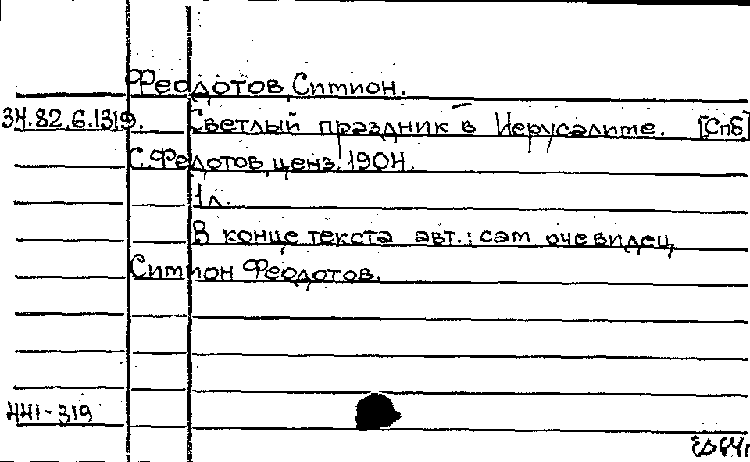 Феодотов, Симион.
34.82.6.1319. Светлый праздник в Иерусалиме. [Спб]
С. Федотов, ценз. 1904.
1л.
В конце текста авт.: сам очевидец
Симион Феодотов.
441-319